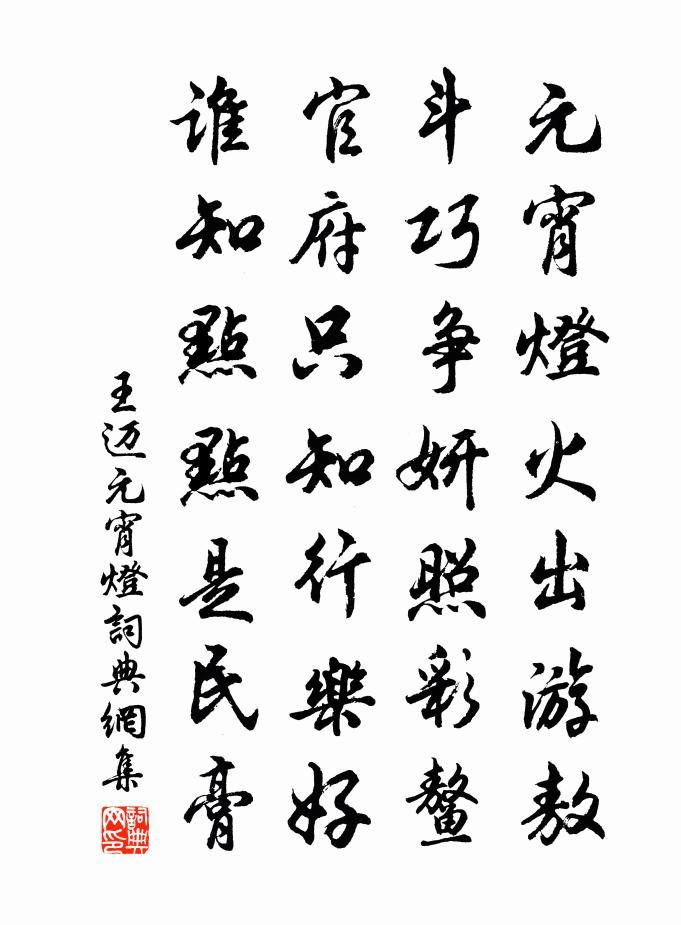 元宵燈火出游敖
斗巧争妍照彩鳌
官府只知行樂好
谁知點點是民膏
王迈元宵燈詞典網集
詞典网印